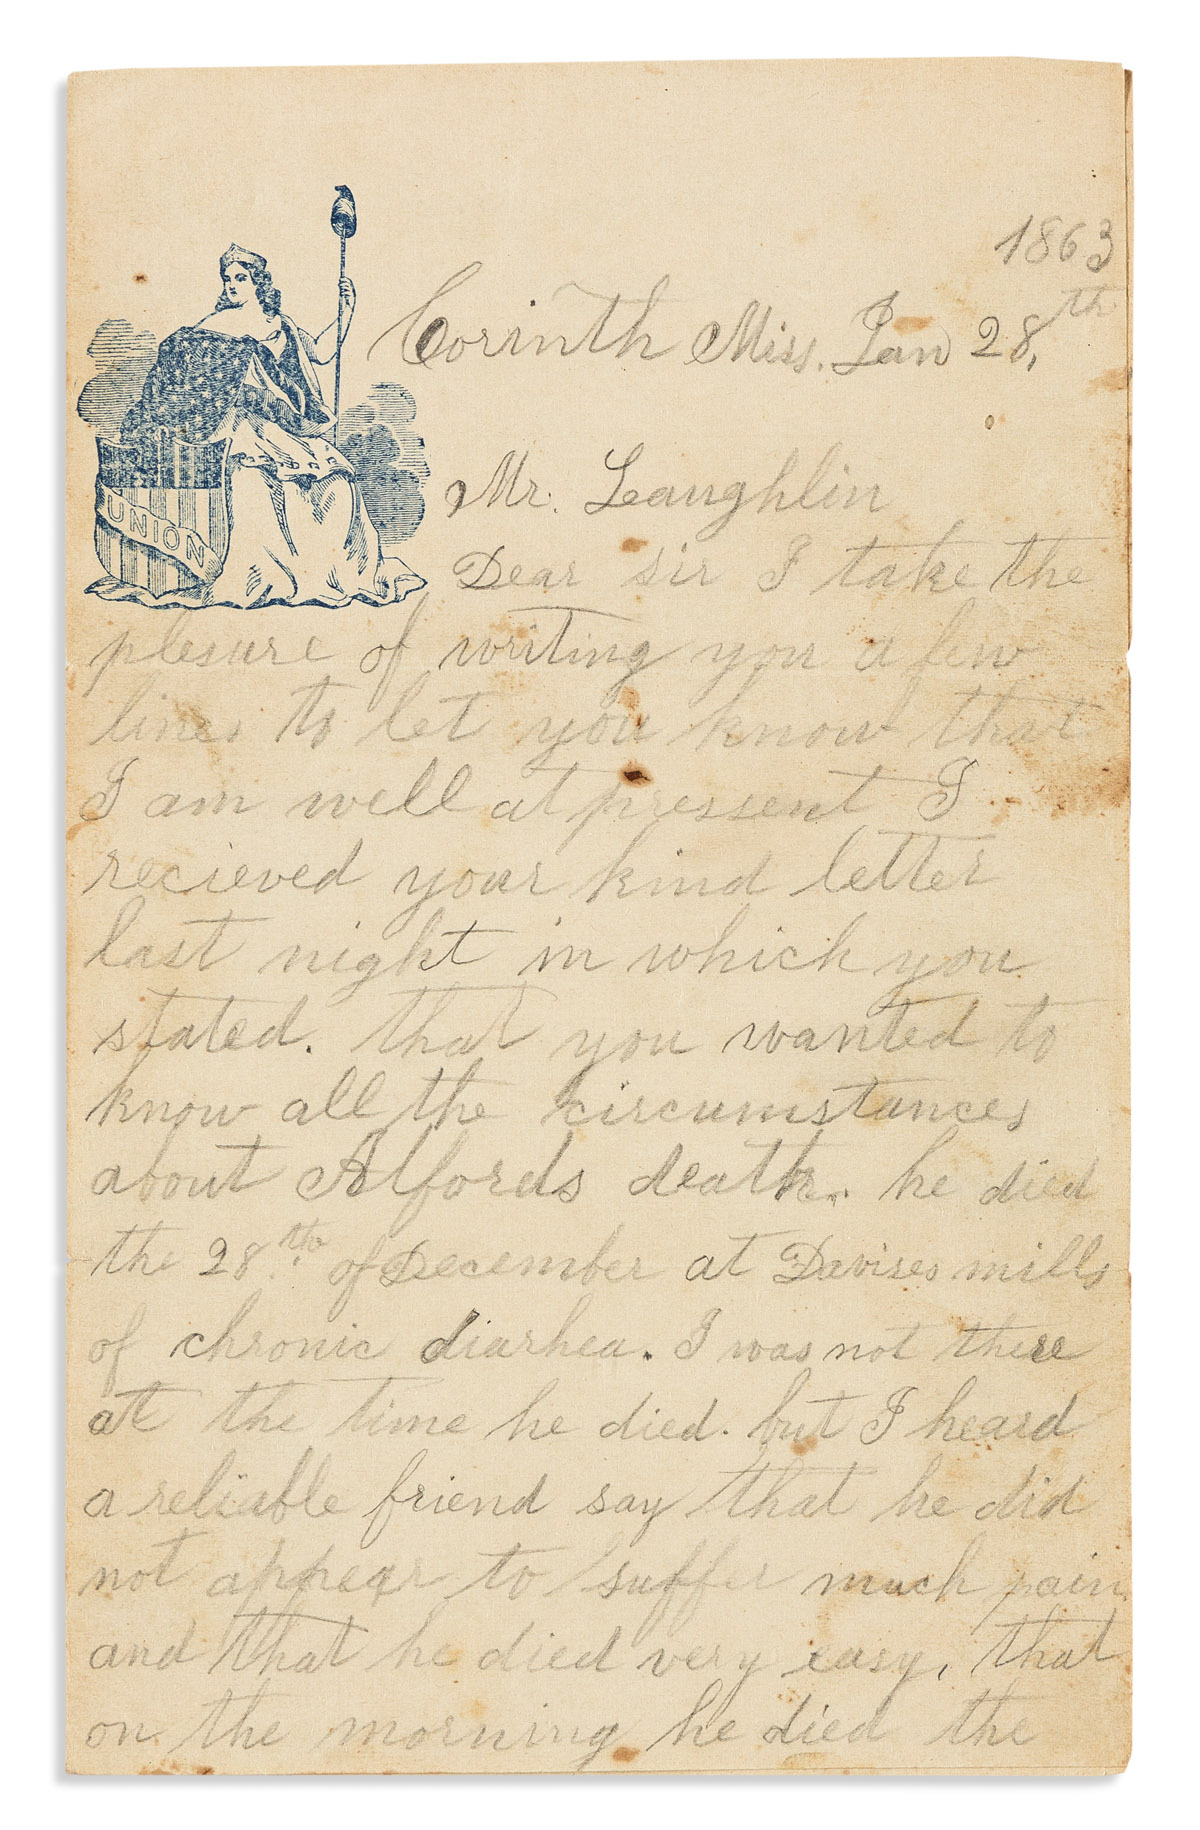 1863
Corinth Miss. Jan 28,th
UNION
Mr. Laughlin
Dear sir I take the
plesure of writing you a few
lines to let you know that
I am well at pressent I
recieved your kind letter
last night in which you
stated. that you wanted to
know all the circumstances
about Alfords death. he died
the 28.th of December at Davises mills
of chronic diarhea. I was not there
at the time he died. but I heard
a reliable friend say that he did
not appear to suffer much pain.
and that he died very easy, that
on the morning he died the